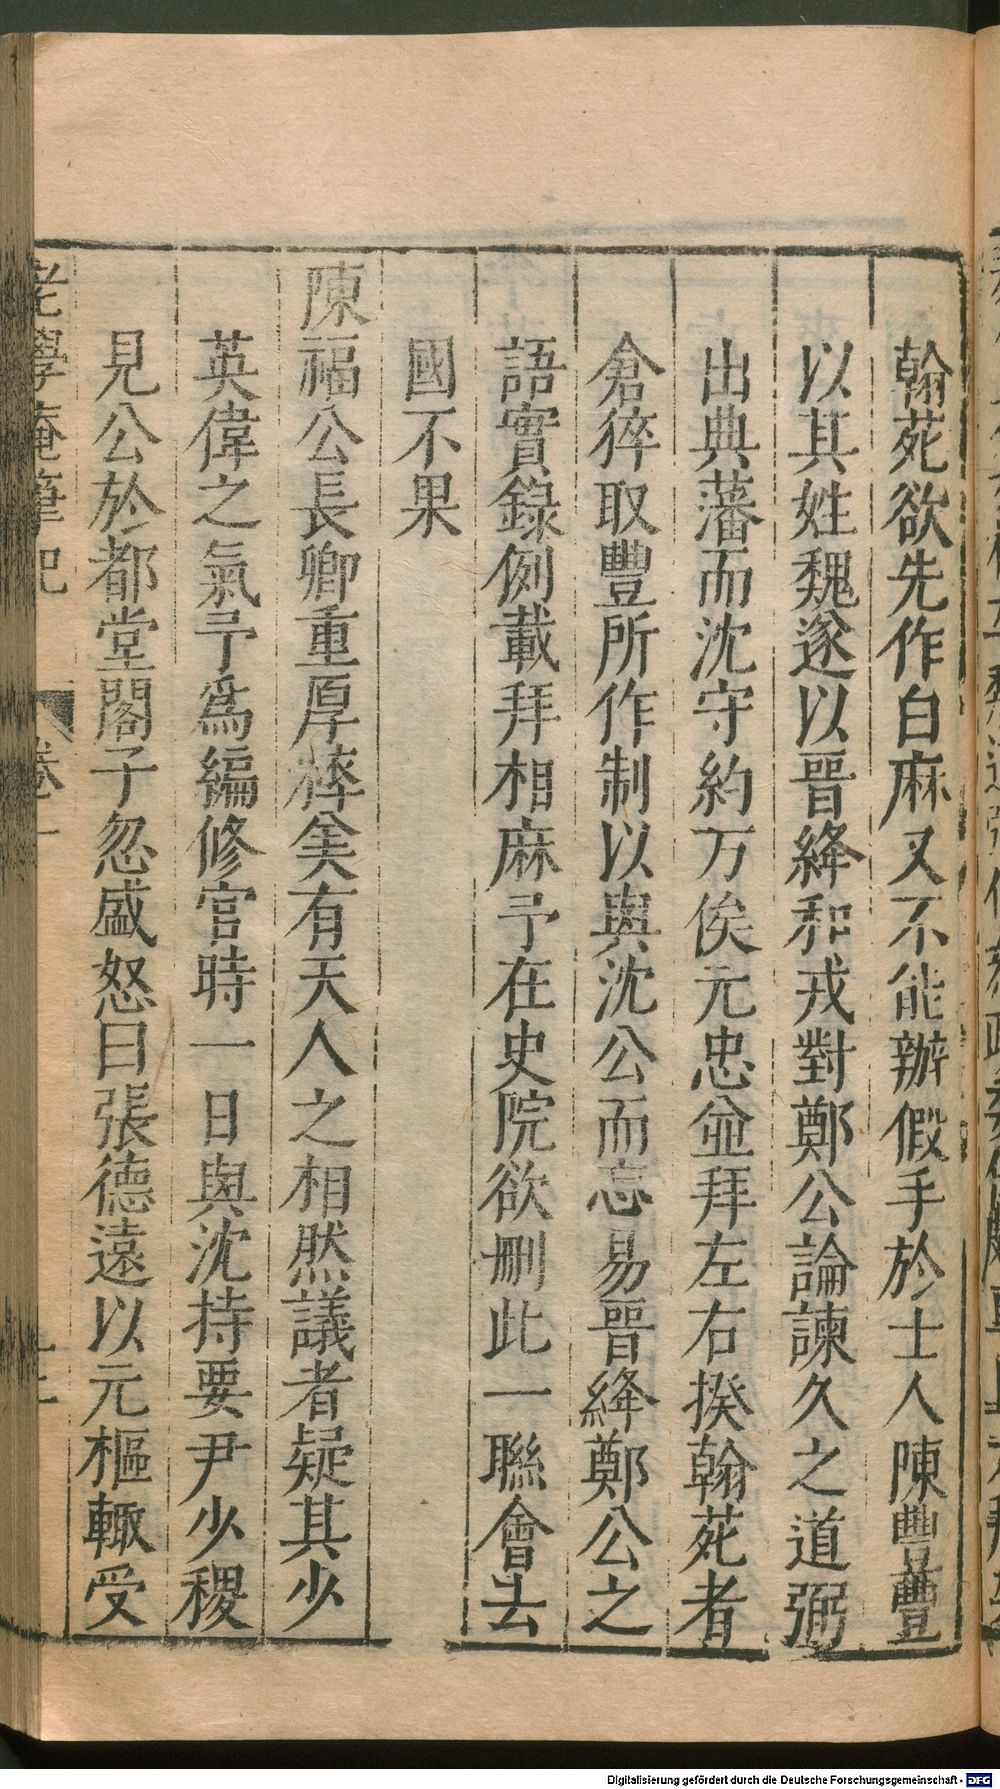 翰苑欲先作白麻又不能辦假手於士人陳豐豐
以其姓魏遂以晉絳和戎對鄭公論諫久之道弼
出典藩而沈守約万俟元忠並拜左右揆翰苑者
倉猝取豐所作制以與沈公而忘易晉絳鄭公之
語實錄例載拜相麻予在史院欲刪此一聯會去
國不果
陳福公長卿重厚粹美有天人之相然議者疑其少
英偉之氣予爲編修官時一日與沈持要尹少稷
見公於都堂閣子忽盛怒曰張德遠以元樞輙受
老學庵筆記 卷一
Digitalisierung gefördert durch die Deutsche Forschungsgemeinschaft - DFG